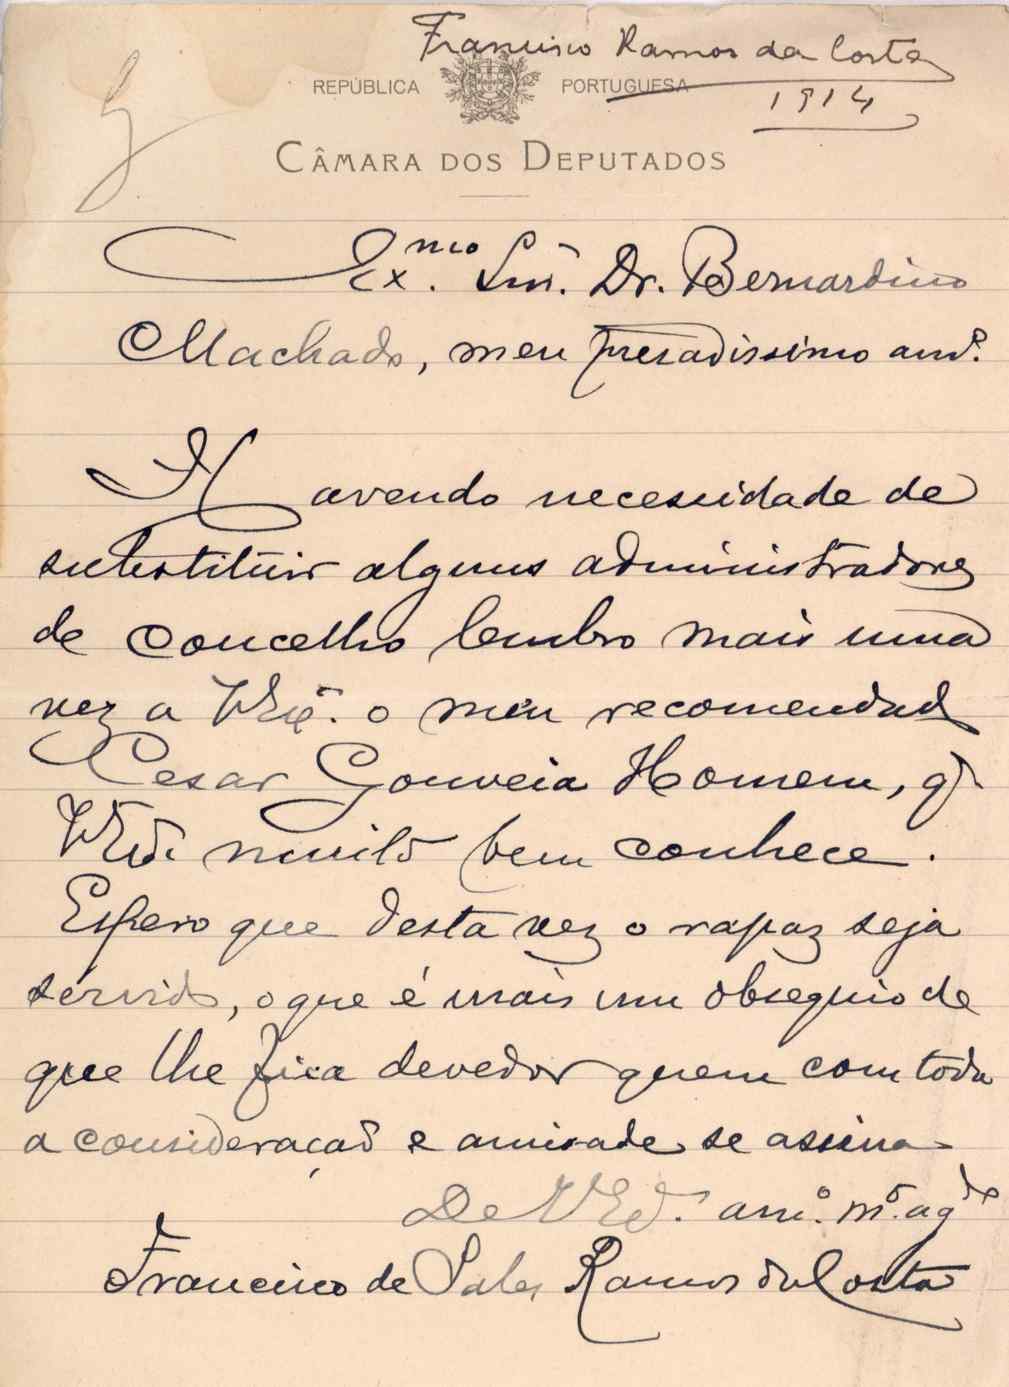 Francisco Ramos da Costa
REPÚBLICA PORTUGUESA
1914
CÂMARA DOS DEPUTADOS
Exmo. Snr. Dr. Bernardino
Machado, meu presadissimo amo.
Havendo necessidade de
substituir alguns administradores
de concelho lembro mais uma
vez a VExª. o meu recomendado
Cesar Gouveia Homem, q.
VExª. muito bem conhece.
Espero que desta vez o rapaz seja
servido, o que é mais um obsequio de
que lhe fica devedor quem com toda
a consideração e amisade se assina
De VExª. amo. mto. agdo
Francisco de Sales Ramos da Costa